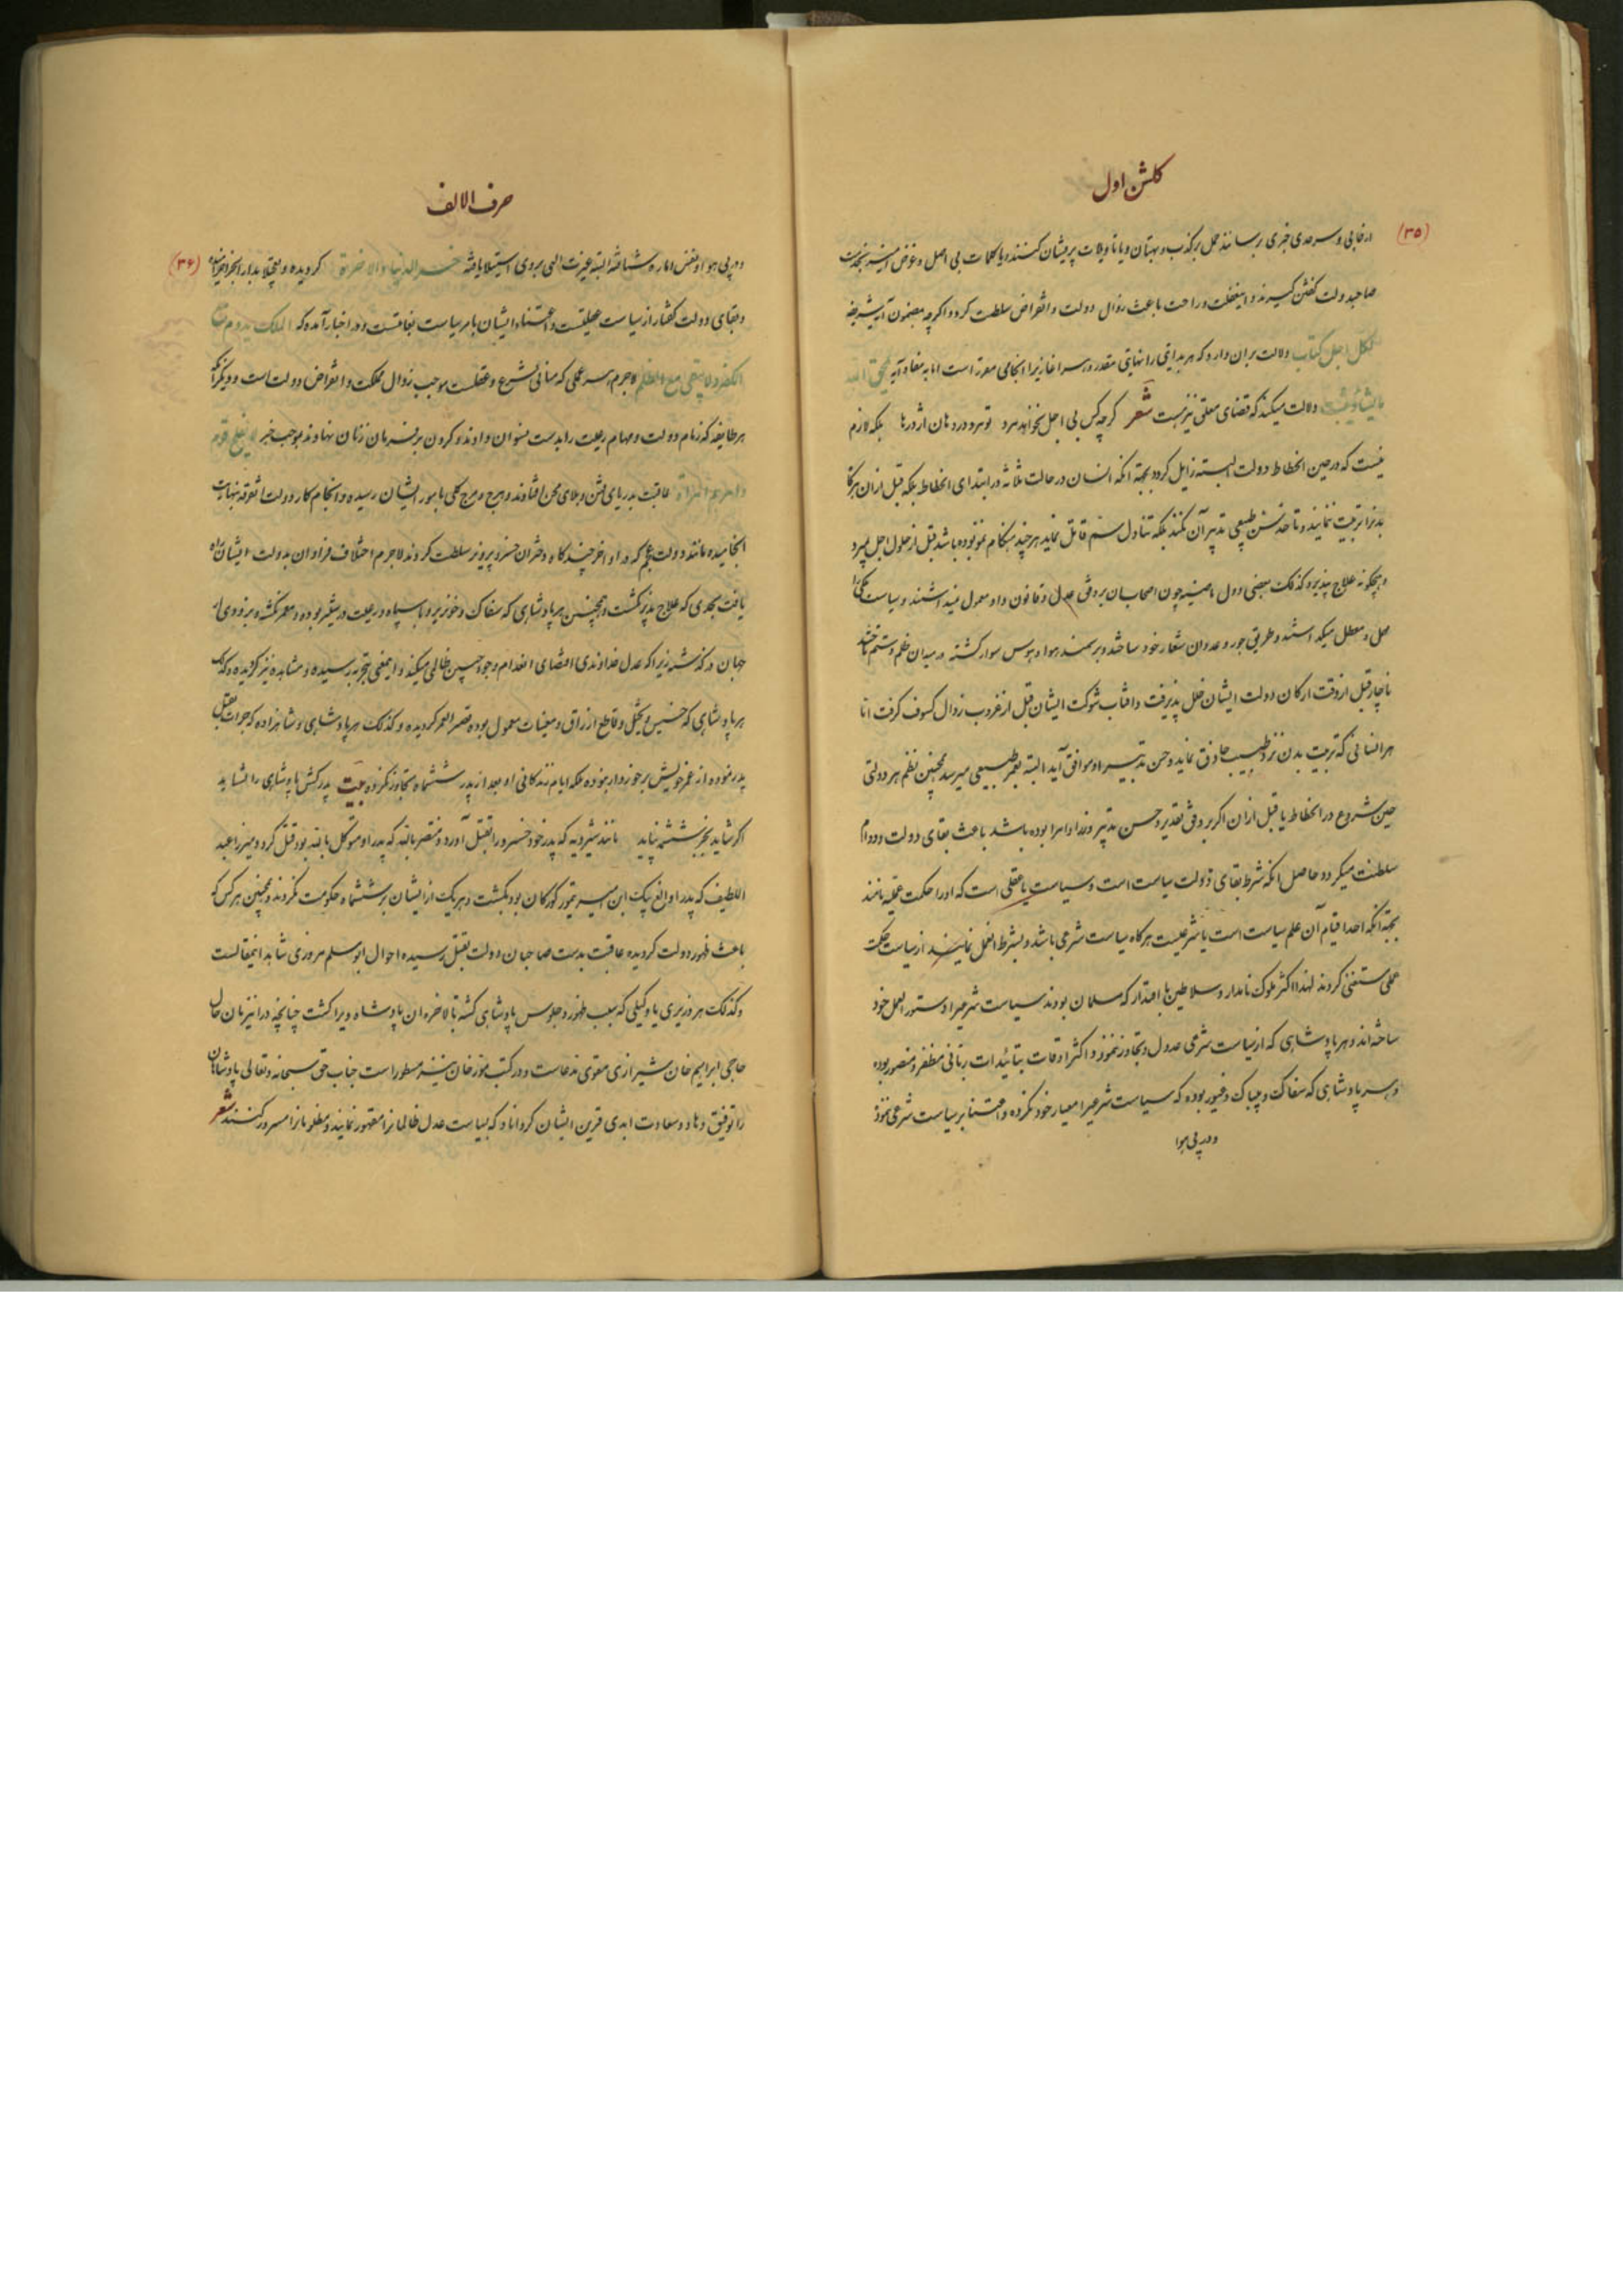 کلشن اول
(۳۵)
از جایی و سرحدی خبری برسانند حمل بر کذب و بهتان و یا تاویلات پریشان کنند و یا کلمات بی اصل و غرض آمیز بخدمت
صاحبدولت کفتن کیرند و اینغفلت و راحت باعث زوال دولت و انقراض سلطنت کردد اکرچه بمضمون آیه شریفه
لکل اجل کتاب دلالت بران دارد که هر بدایتی را نهایتی مقدر و هر اغازیرا انجامی مقرر است اما به مفاد آیه یمحق الله
ما یشاء و یثبت دلالت میکند که قضای معلقی نیز هست شعر کرچه کس بی اجل نخواهد مرد تو مرو در دهان اژدرها بلکه لازم
نیست که در حین انحطاط دولت البسته زایل کردد بجهة آنکه انسان در حالت ثلاثه در ابتدای انحطاط بلکه قبل ازان هرکا
بدنرا تربیت ننمایند و تا حد سن طبیعی تدبیر آن نکنند بلکه تناول سم قاتل نماید هرچند هنکام نمو بوده باشد قبل از حلول اجل بمیرد
و هیچکونه علاج نپذیرد کذلک بعضی دول ماضیه چون اصحابان بر وفق عدل و قانون داد معمول نمیداشتند و سیاست حکمی را
مهمل و معطل میکداشتند و طریق جور و عدوان شعار خود ساخته و بر سمند هوا و هوس سوار کشته در میدان ظلم و ستم تاختند
ناچار قبل از وقت ارکان دولت ایشان خلل پذیرفت و افتاب شوکت ایشان قبل از غروب زوال کسوف کرفت اما
هر انسانی که تربیت بدن نزد طبیب حاذق نماید و حسن تدبیر او موافق آید البته بعمر طبیعی میرسد همچنین نظم هر دولتی
حین شروع در انحطاط یا قبل ازان اکر بر وفق تقدیر و حسن تدبیر وزرا و امرا بوده باشد باعث بقای دولت و دوام
سلطنت میکردد حاصل انکه شرط بقای دولت سیاست است و سیاست یا عقلی است که اورا حکمت عقلیه نامند
بجهة آنکه احد اقیام آن علم سیاست است یا شرعیست هرکاه سیاست شرعی باشد و بشرط العمل نمایند از سیاست حکمت
عملی مستغنی کردند لهذا اکثر ملوک نامدار و سلاطین با اقتدار که مسلمان بودند سیاست شرعیرا دستور العمل خود
ساخته‌اند و هر پادشاهی که از سیاست شرعی عدول و تجاوز ننمود در اکثر اوقات بتائیدات ربانی مظفر و منصور بوده
و هر پادشاهی که سفاک و بیباک و غیور بوده که سیاست شرعیرا معیار خود نکرده و اعتنا بر سیاست شرعی ننمود
و در پی هوا
حرف الالف
(۳۶)
و در پی هوا و نفس اماره شتافته البته غیرت الهی بروی استیلا یافته خسر الدنیا و الاخرة کردیده
و بقای دولت کفار از سیاست عقلیست و اعتناء ایشان بامر سیاست بغایتست و در اخبار آمده که الملک یدوم مع
الکفر و لا یبقی مع الظلم لاجرم هر عملی که منافی شرع و عقلست موجب زوال مملکت و انقراض دولت است و دیکر آنکه
هر طایفه که زمام دولت و مهام رعیت را بدست نسوان دادند و کردن بر فرمان زنان نهادند بموجب خبر لا یفلح قوم
عاقبت بدریای فتن و بلای محن افتادند و هرج و مرج کلی بامور ایشان رسیده و انجام کار دولت
انجامیده مانند دولت عجم که در اواخر چند کاه دختران خسرو پرویز سلطنت کردند لاجرم اختلاف فراوان بدولت ایشان راه
یافت بحدی که علاج پذیر نکشت و همچنین هر پادشاهی که سفاک و خونریز و با سپاه و رعیت در ستیز بوده معمر نکشته و بزودی از
جهان در کذشته زیرا که عدل خداوندی اقتضای انعدام وجود چنین ظالمی میکند و اینمعنی بتجربه رسیده و مشاهده نیز کردیده و کذلک
هر پادشاهی که خسیس و بخیل و قاطع ارزاق و معینات معمول بوده قصیر العمر کردیده و کذلک هر پادشاهی و شاهزاده که جرات بقتل
پدر نموده از عمر خویش برخوردار نبوده بلکه ایام زندکانی او بعد از پدر ششماه تجاوز نکرده بیت پدرکش پادشاهی را نشاید
اکر شاید بجز ششمه نپاید مانند شیرویه که پدر خود خسرو را بقتل آورد و منتصر بالله که پدر او متوکل بالله بود قتل کرد و میرزا عبد
اللطیف که پدر او الغ بیک ابن امیر تیمور کورکان بود بکشت و هر یک از ایشان بر ششماه حکومت نکردند و همچنین هر کس که
باعث ظهور دولت کردیده عاقبت بدست صاحبان دولت بقتل رسیده احوال ابومسلم مروزی شاهد اینمقالست
و کذلک هر وزیری یا وکیلی که سبب ظهور و جلوس پادشاهی کشته بالاخره ان پادشاه ویرا کشت چنانچه در اینزمان حال
حاجی ابراهیم خان شیرازی مقوی مدعاست و در کتب مورخان نیز مسطور است جناب حق سبحانه و تعالی پادشاهان
را توفیق دهاد و سعادت ابدی قرین ایشان کرداناد که بسیاست عدل ظالمانرا مقهور نمایند و مظلومانرا مسرور کنند شعر